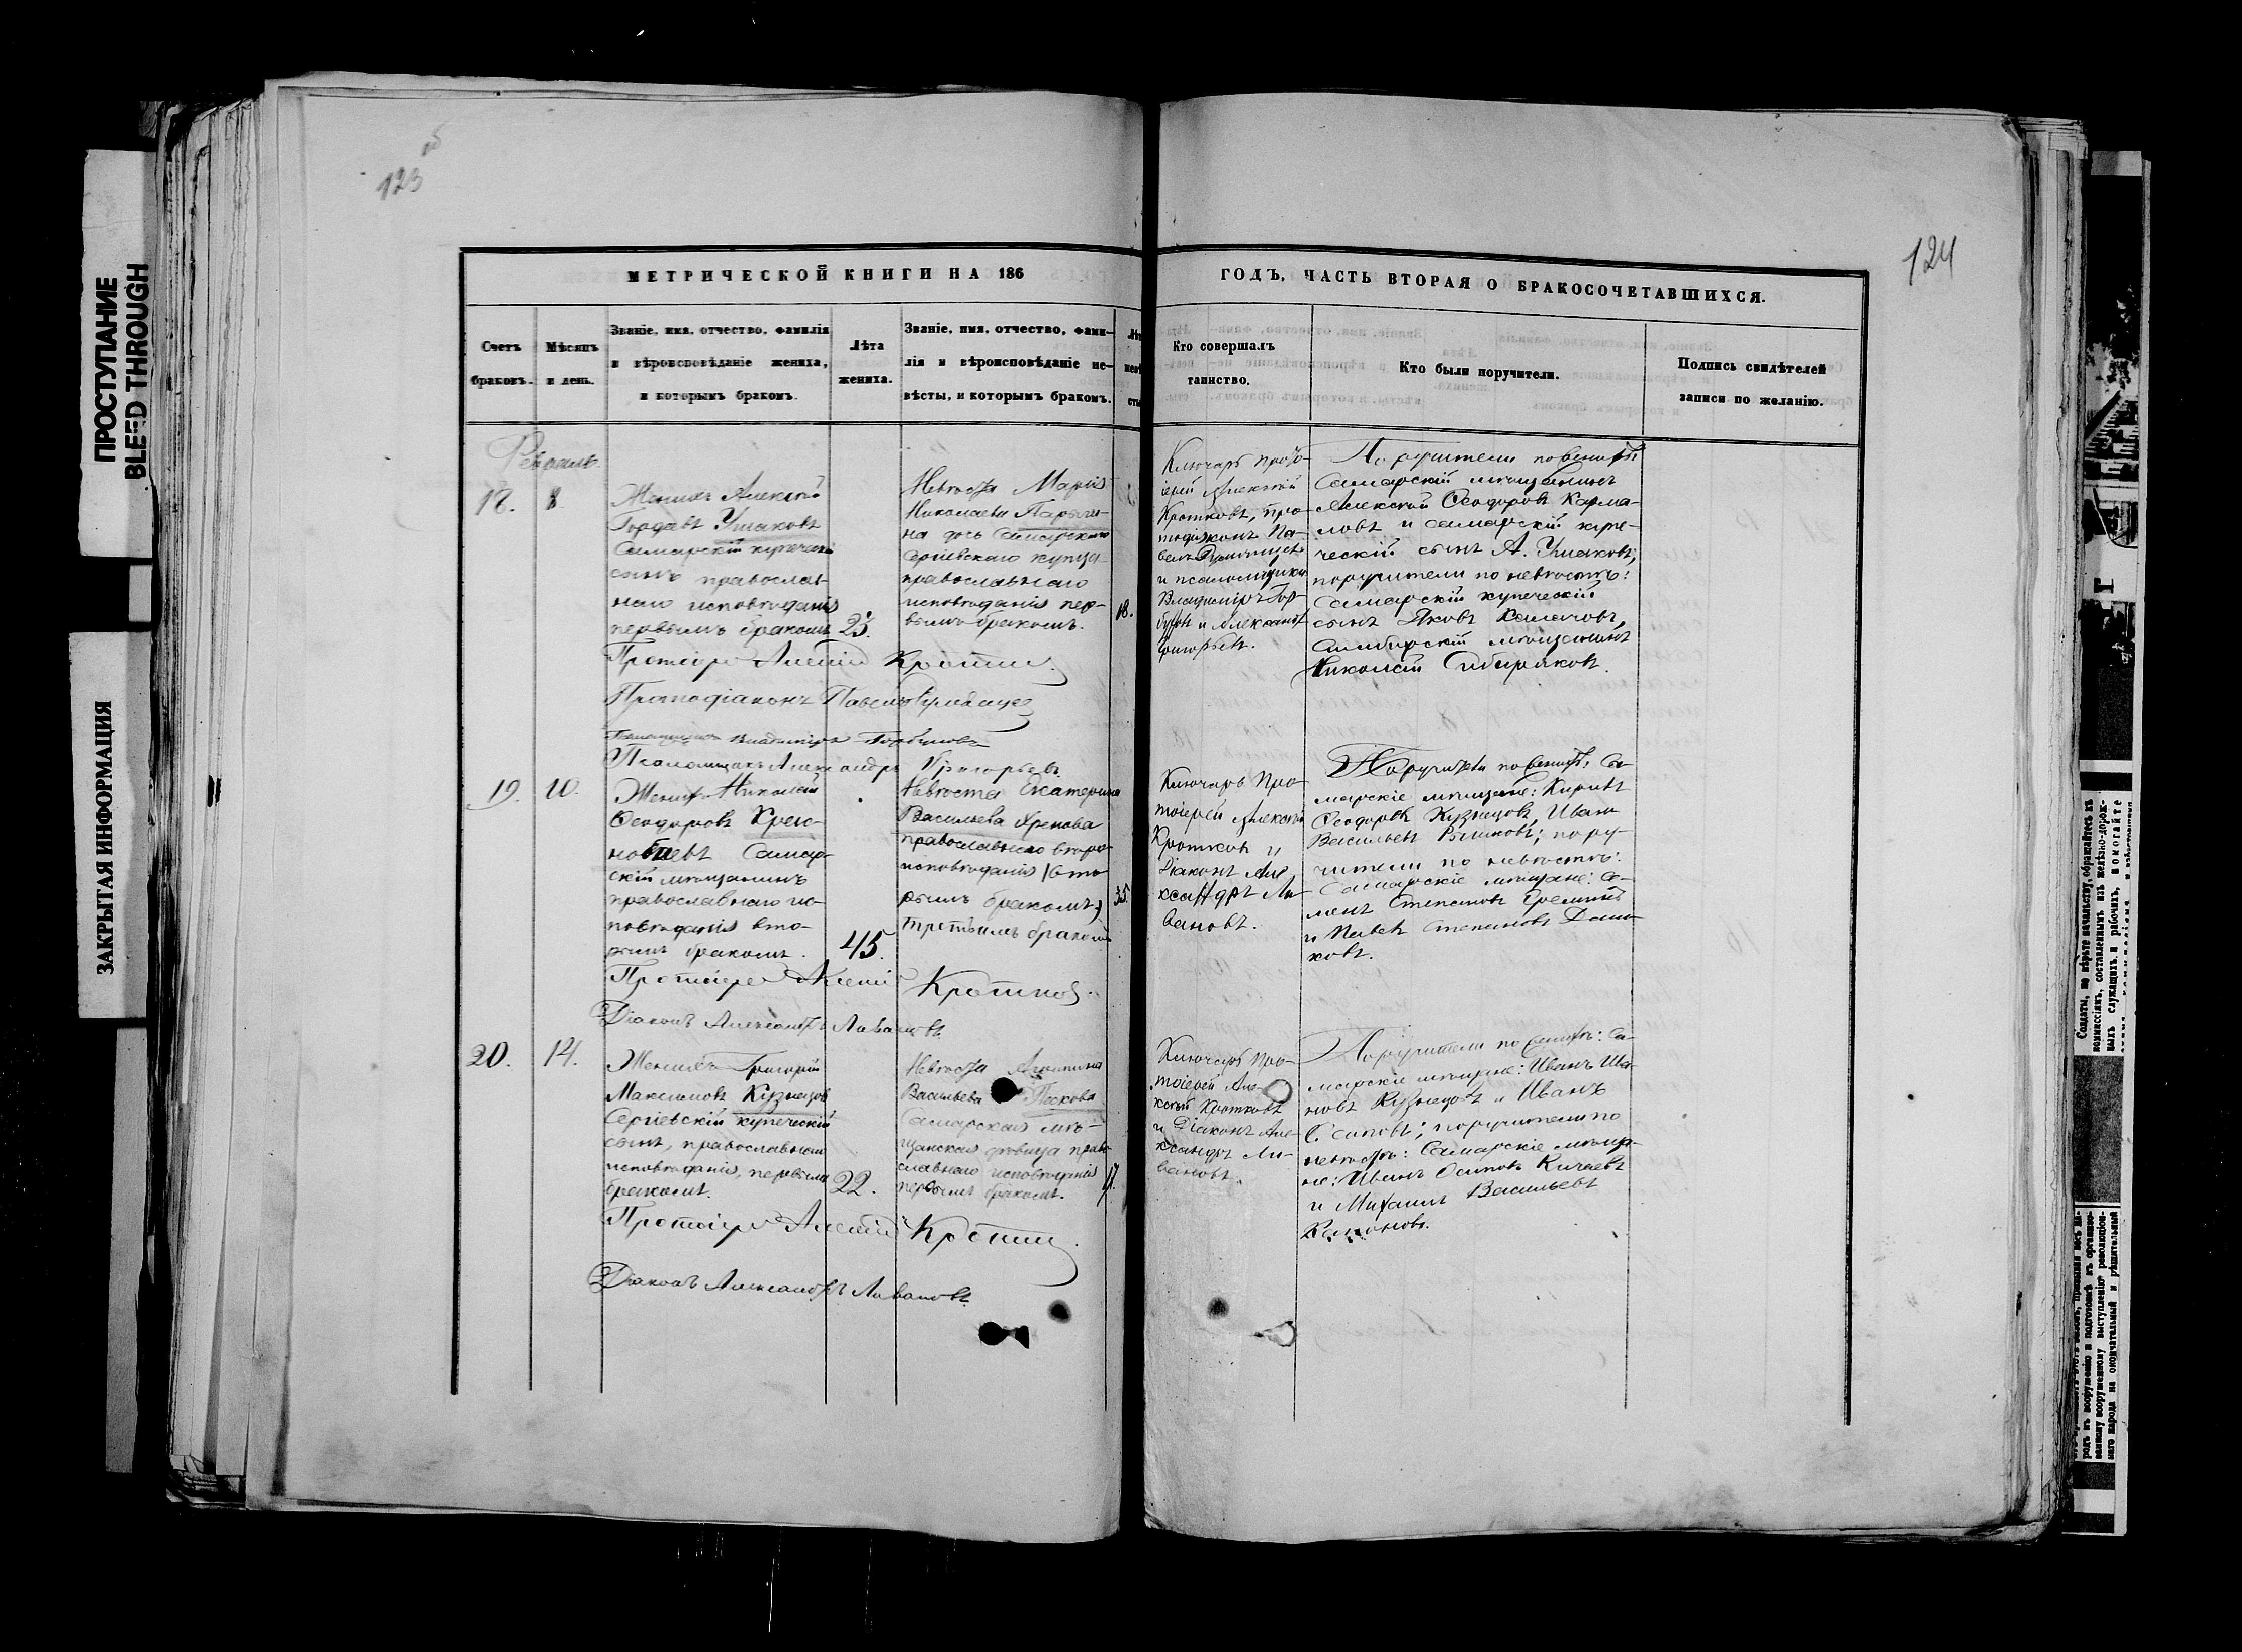 ПРОСТУПАНИЕ
BLEED THROUGH
ЗАКРЫТАЯ ИНФОРМАЦИЯ
123
124
МЕТРИЧЕСКОЙ КНИГИ НА 186
ГОДЪ, ЧАСТЬ ВТОРАЯ О БРАКОСОЧЕТАВШИХСЯ.
Счетъ
браковъ.
Мѣсяцъ
и день.
Званіе, имя, отчество, фамилія
и вѣроисповѣданіе жениха,
и которымъ бракомъ.
Лѣта
жениха.
Званіе, имя, отчество, фами-
лія и вѣроисповѣданіе не-
вѣсты, и которымъ бракомъ.
Кто совершалъ
таинство.
Кто были поручители.
Подпись свидѣтелей
записи по желанію.
Февраль.
18.
8.
Женихъ Алексѣй
Гордѣевъ Ушаковъ
Самарскій купеческій
сынъ православ-
наго исповѣданія
первымъ бракомъ
23.
Невѣста Марія
Николаева
на дочь Самарскаго
Сергіевскаго купца
православнаго
исповѣданія пер-
вымъ бракомъ.
18.
Ключарь прото-
іерей Алексѣй
Кротковъ, про-
тодіаконъ Па-
велъ
и псаломщики
Владиміръ Гор-
буновъ и Александръ
Григорьевъ.
Поручители по женихѣ
Самарскій мѣщанинъ
Алексѣй Ѳеодоровъ Карма-
ловъ и самарскій купе-
ческій сынъ А. Ушаковъ;
поручители по невѣстѣ:
Самарскій купеческій
сынъ Яковъ
Симбирскій мѣщанинъ
Николай Сибиряковъ.
Протоіерей Алексій Кротковъ
Протодіаконъ Павелъ
Псаломщикъ Владиміръ Горбуновъ
Псаломщикъ Александръ Григорьевъ
19.
10.
Женихъ Николай
Ѳеодоровъ Крас-
Самар-
скій мѣщанинъ
православнаго ис-
повѣданія вто-
рымъ бракомъ.
45.
Невѣста Екатерина
Васильева Хренова
православнаго второ
исповѣданія (вто-
рымъ бракомъ)
третьимъ бракомъ
35.
Ключарь Про-
тоіерей Алексѣй
Кротковъ и
Діаконъ Але-
ксандръ Ли-
вановъ.
Поручители по женихѣ: Са-
марскіе мѣщане: Кирилъ
Ѳеодоровъ Кузнецовъ, Иванъ
Васильевъ; пору-
чители по невѣстѣ:
Самарскіе мѣщане: Се-
менъ Степановъ
и Павелъ Степановъ
ковъ.
Протоіерей Алексій Кротковъ.
Діаконъ Александръ Ливановъ.
20.
14.
Женихъ Григорій
Максимовъ Кузнецовъ
Сергіевскій купеческій
сынъ, православнаго
исповѣданія, первымъ
бракомъ.
22.
Невѣста Агрипина
Васильева Пескова
Самарская мѣ-
щанская дѣвица право-
славнаго исповѣданія
первымъ бракомъ.
17.
Ключарь Про-
тоіерей Але-
ксѣй Кротковъ
и Діаконъ Але-
ксандръ Ли-
вановъ.
Поручители по женихѣ: Са-
марскіе мѣщане: Иванъ Ива-
новъ Кузнецовъ и Иванъ
Осиповъ; поручители по
невѣстѣ: Самарскіе мѣща-
не: Иванъ Осиповъ Кичаевъ
и Михаилъ Васильевъ
Протоіерей Алексій Кротковъ.
Діаконъ Александръ Ливановъ.